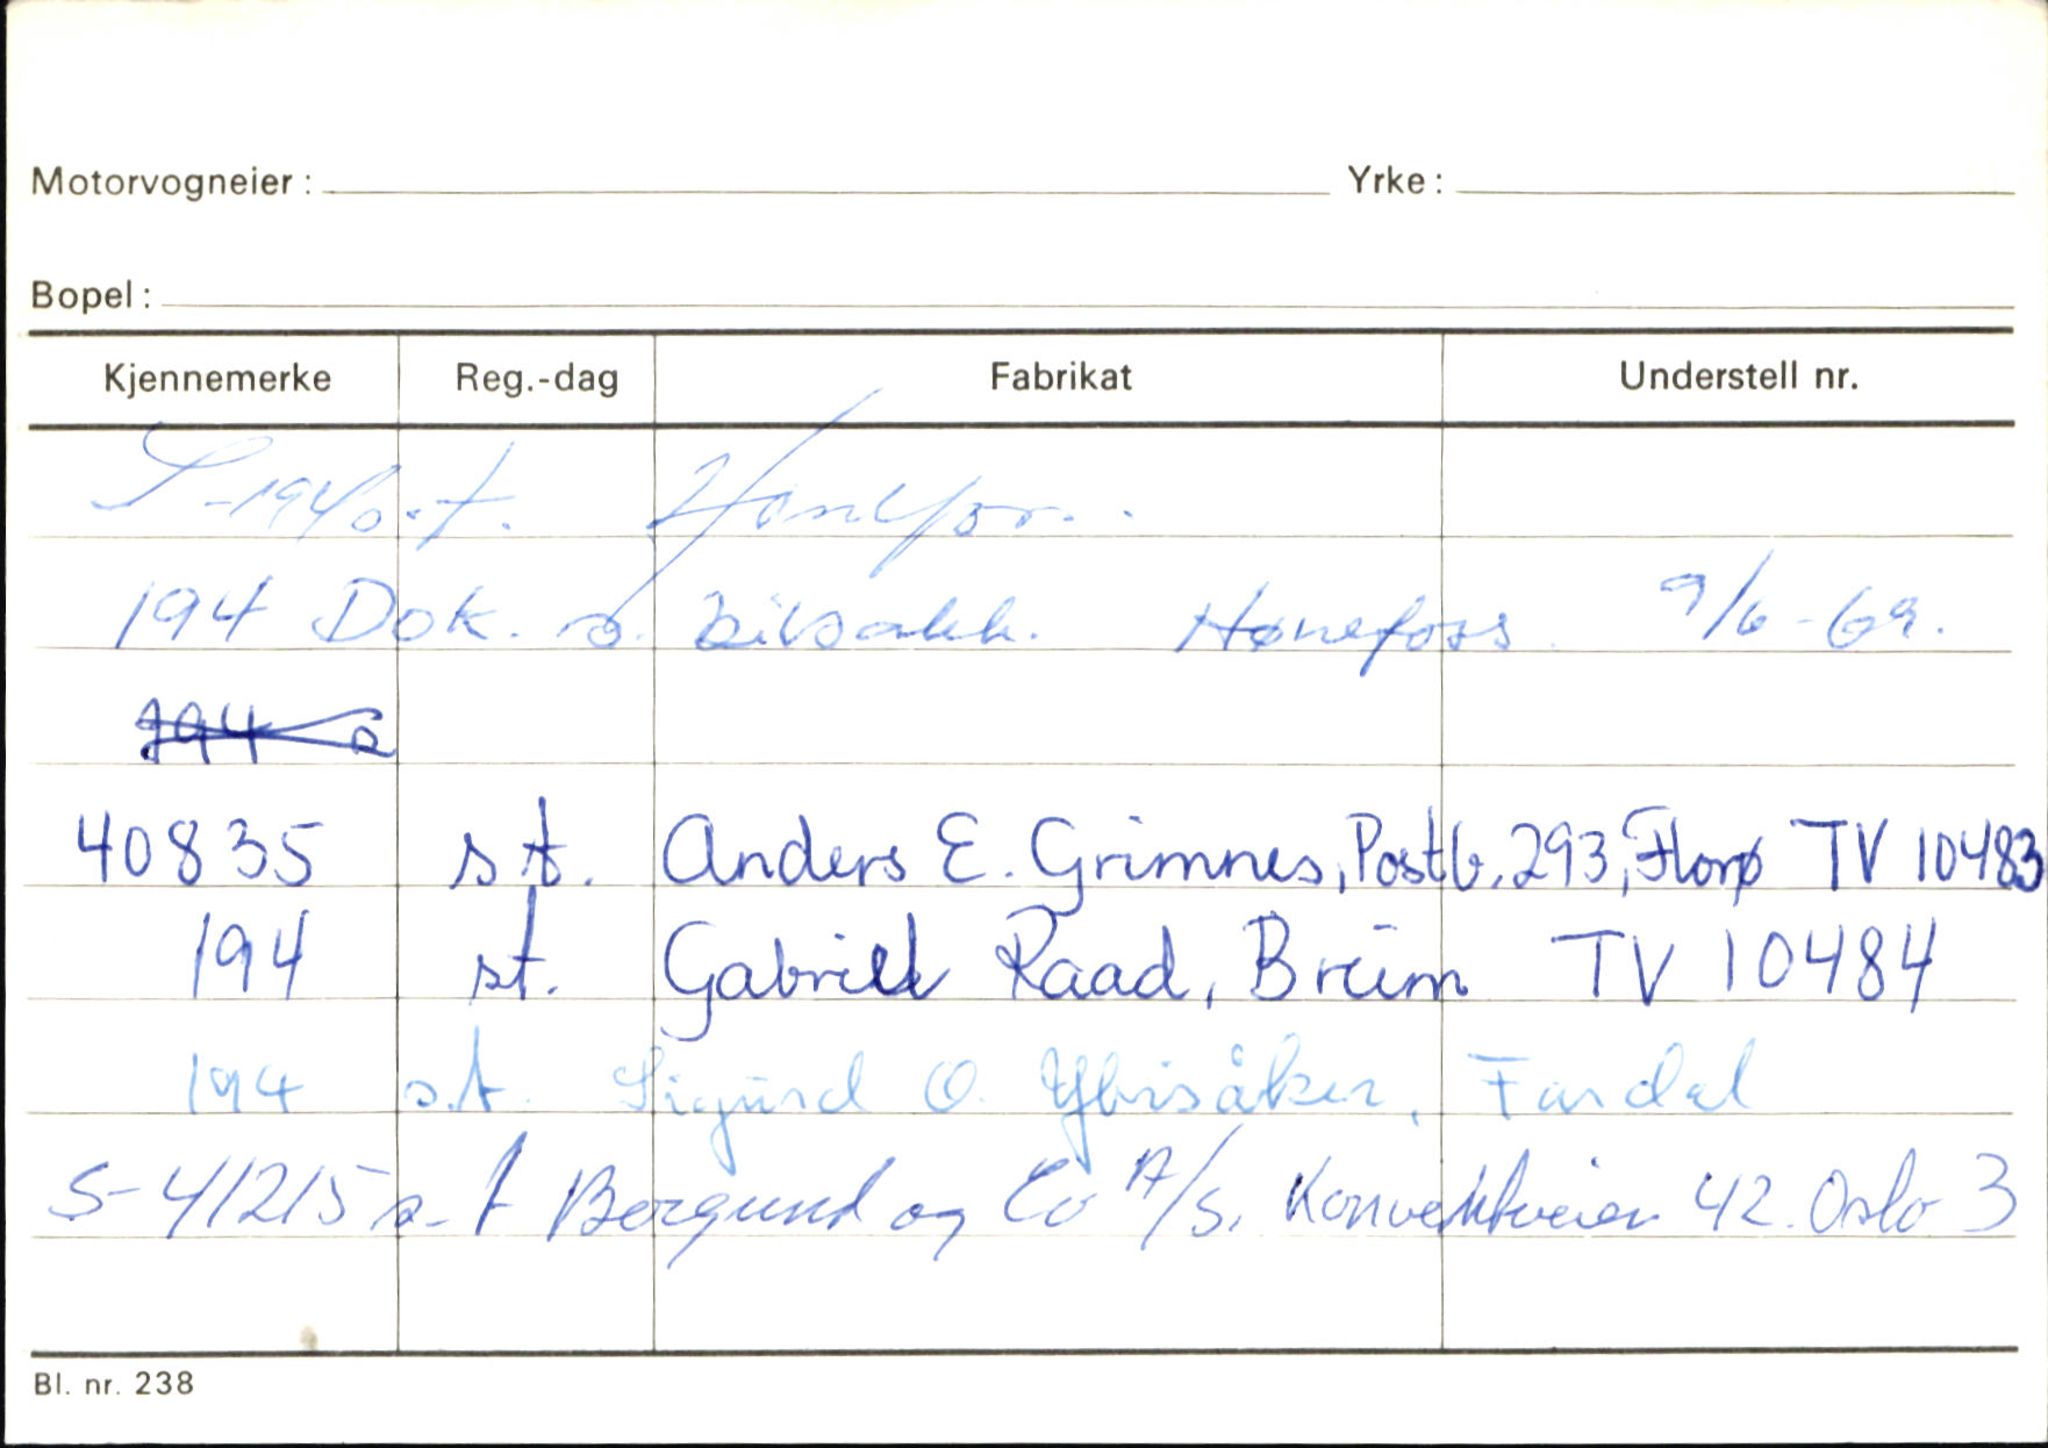 Motorvogneier: Yrke:
Bopel:
Kjennemerke Reg.-dag Fabrikat Understell nr.
S-194 s.t.
194 Dok. s. bilsakk. Hønefoss 9/6-69.
194 s
40835 s.t. Anders E. Grimnes, Postb. 293, Florø TV 10483
194 st. Gabriel Raad, Breim TV 10484
194 s.t. Sigurd O. Ylvisåker, Fardal
S-41215 s.t Bergund og Co A/S. Konvektveien 42. Oslo 3
Bl. nr. 238